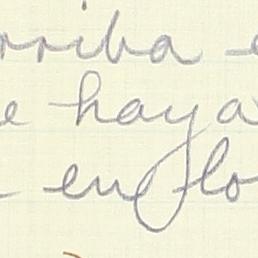 arriba e
e haya
en lo